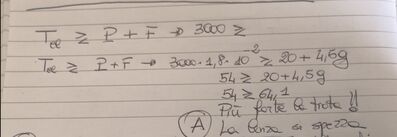 Tce ≥ P + F → 3000 ≥
Tce ≥ P + F → 3000·1,8·10⁻² ≥ 20 + 4,5g
54 ≥ 20 + 4,5g
54 ≥ 64,1
Più forte la trota!!
(A) La lenza si spezza